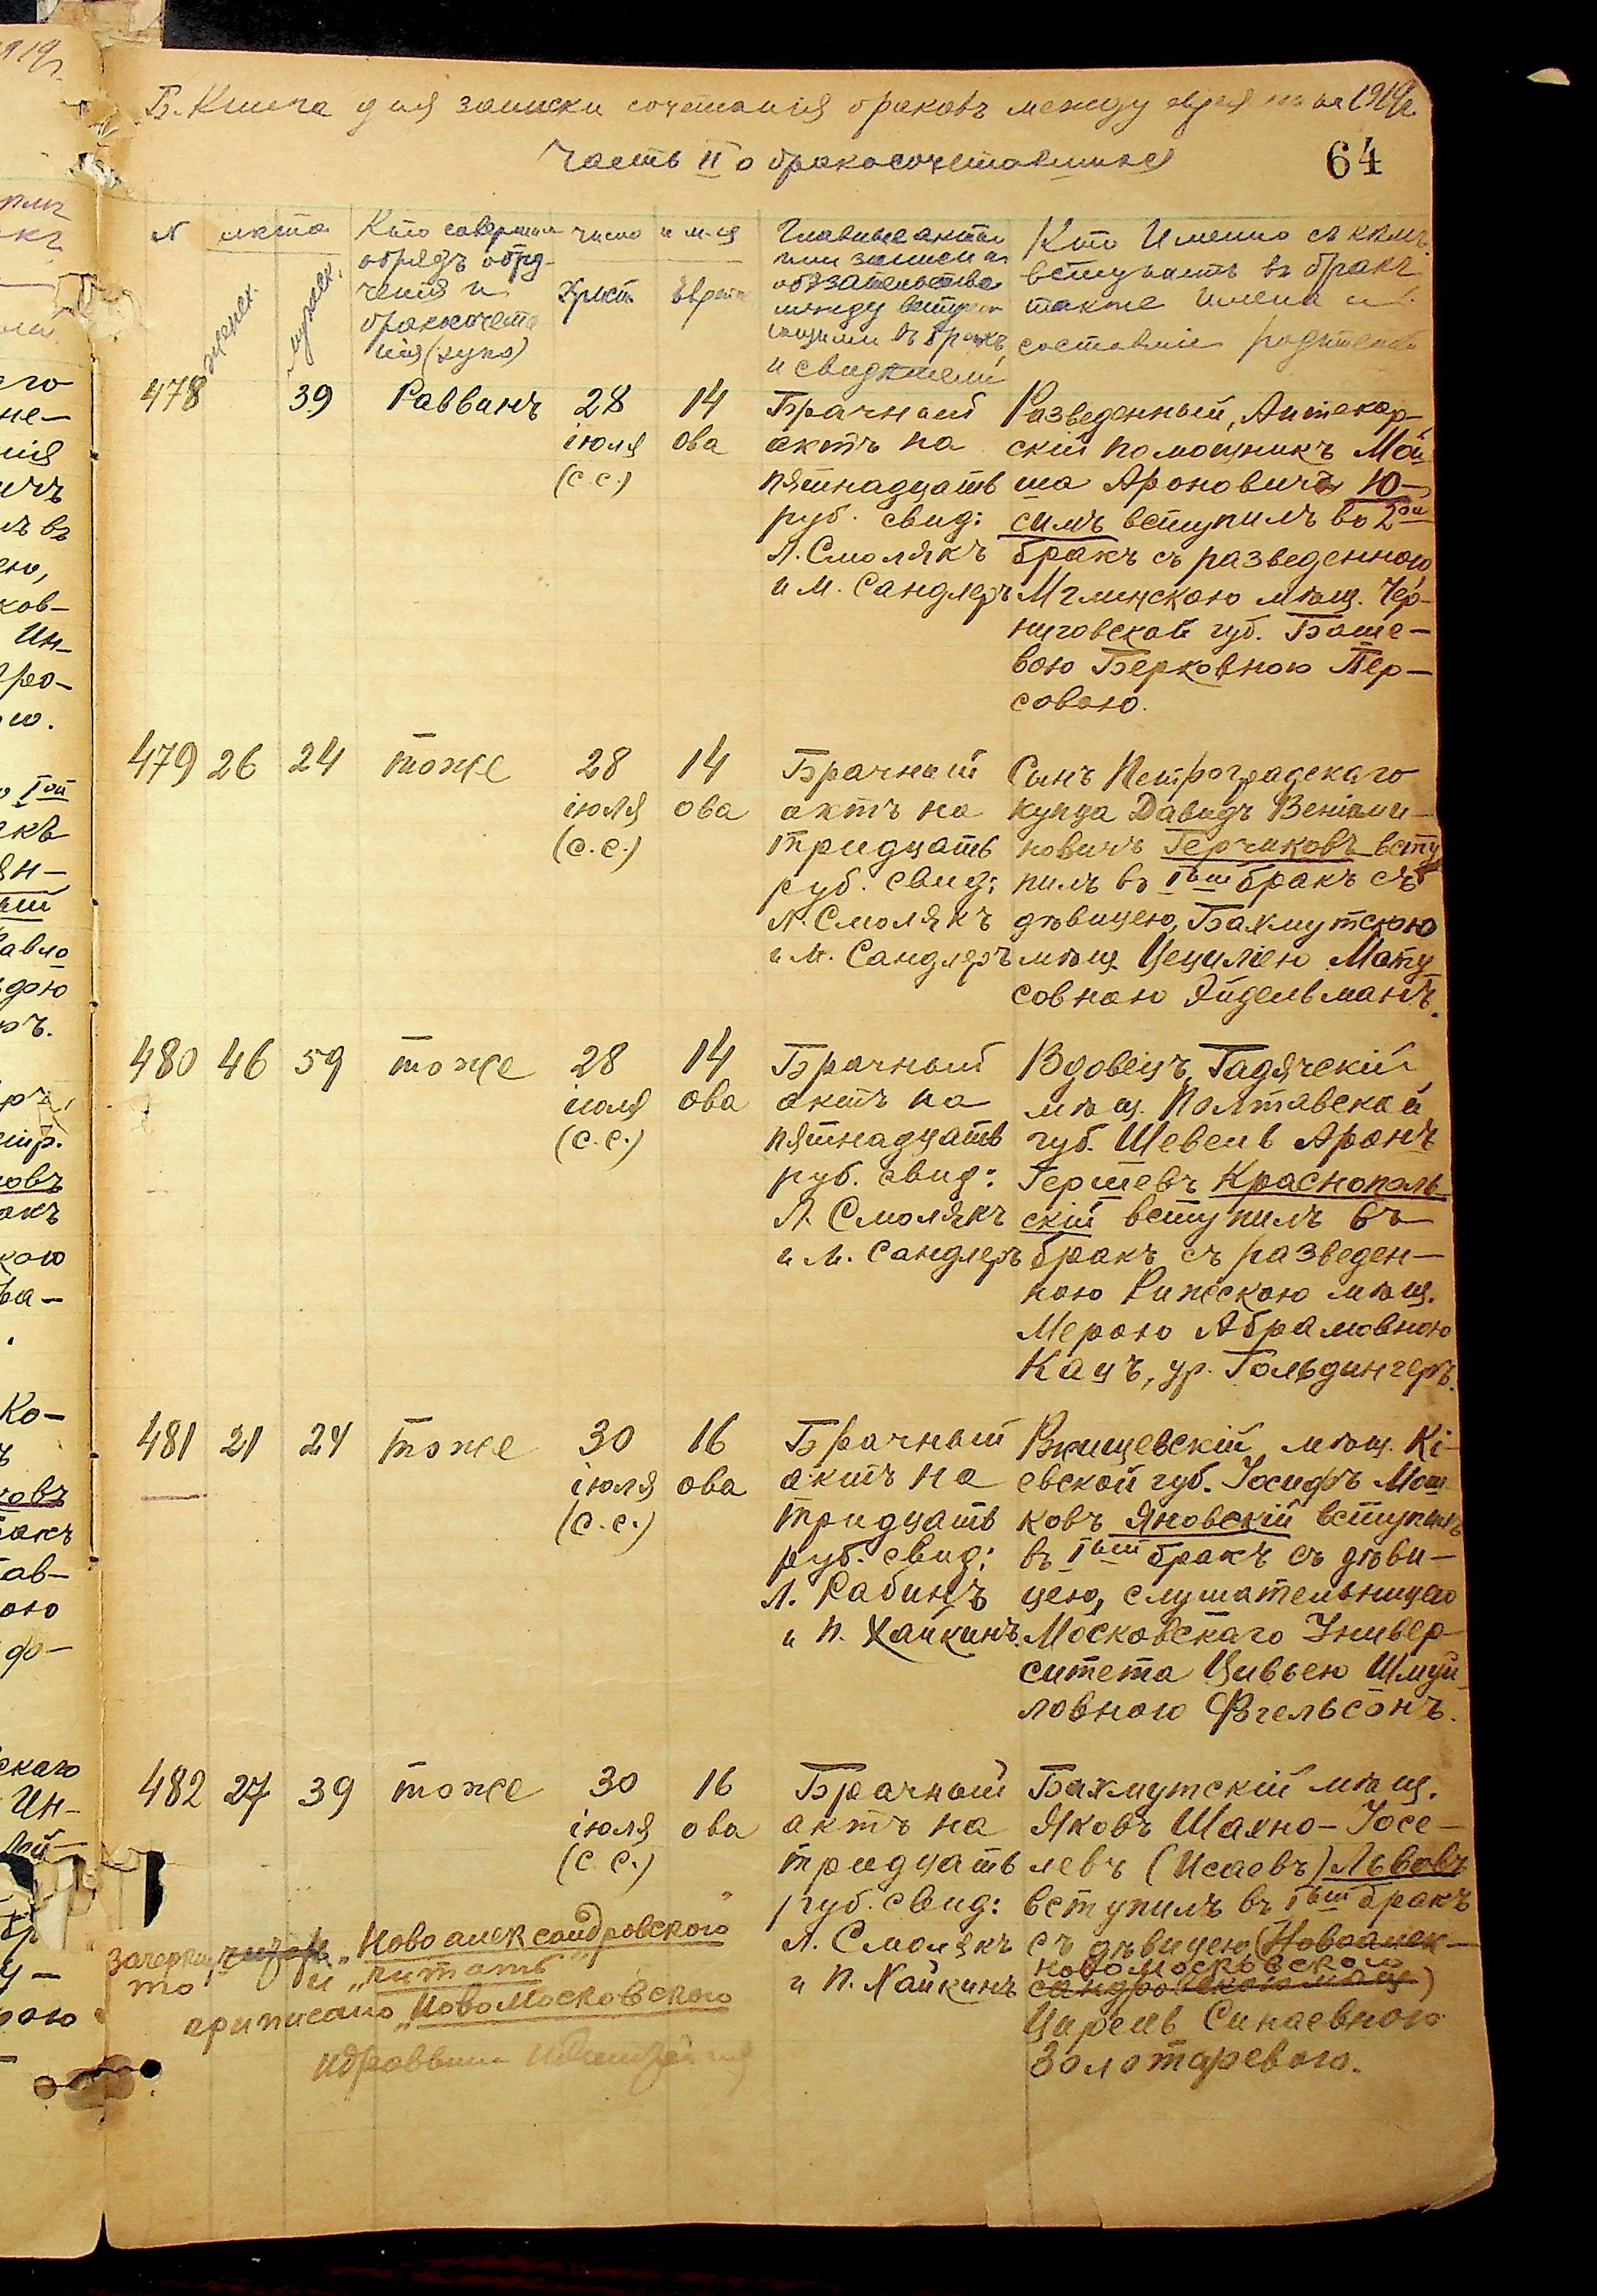 Б. Книга для записки сочетанія браковъ между евреями за 1919г.
Часть II о бракосочетавшихся
64
№ акта
женск.
мужеск.
Кто совершалъ
обрядъ обру-
ченія и
бракосочета
нія (хупо)
число и м-ца
Христ.
Еврейск
Главные акты
или записи и
обязательства
между вступа
ющими въ бракъ
и свидѣтели
Кто Именно съ кѣмъ
вступаетъ въ бракъ
также имена и
состояніе родителей
478
39
Раввинъ
28
іюля
(с.с.)
14
Ова
Брачный
актъ на
пятнадцать
руб. свид:
Л. Смолякъ
и М. Сандлеръ
Разведенный, Аптекар-
скій помощникъ Мов
ша Ароновичъ Ю-
симъ вступилъ во 2ой
бракъ съ разведенною
Мглинскою мѣщ. Чер-
ниговской губ. Баше-
вою Берковною Пер-
совою.
479 26 24 тоже
28
іюля
(с.с.)
14
ова
Брачный
актъ на
тридцать
руб. свид:
Л. Смолякъ
и М. Сандлеръ
Сынъ Петроградскаго
купца Давидъ Веніами-
новичъ Герчиковъ всту
пилъ въ Iый бракъ съ
дѣвицею, Бахмутскою
мѣщ. Цециліею Мату
совною Эйдельманъ.
480 46 59 тоже
28
іюля
(с.с.)
14
ова
Брачный
актъ на
пятнадцать
руб. свид:
Л. Смолякъ
и М. Сандлеръ
Вдовецъ, Гадячскій
мѣщ. Полтавской
губ. Шевель Аронъ
Гершевъ Краснополь
скій вступилъ въ
бракъ съ разведен-
ною Рижскою мѣщ.
Мерою Абрамовною
Кацъ, ур. Гольдингеръ.
481 21 24 тоже
30
іюля
(с.с.)
16
ова
Брачный
актъ на
тридцать
руб. свид:
Л. Рабинъ
и П. Хайкинъ.
Ржищевскій мѣщ. Кі-
евской губ. Іосифъ Мош
ковъ Яновскій вступилъ
въ Iый бракъ съ дѣви-
цею, слушательницею
Московскаго Универ-
ситета Цивьею Шмуй
ловною Фогельсонъ.
482 27 39 тоже
30
іюля
(с.с.)
16
ова
Брачный
актъ на
тридцать
руб. свид:
Л. Смолякъ
и П. Хайкинъ
Бахмутскій мѣщ.
Яковъ Шахно-Іосе-
левъ (Исаевъ) Львовъ
вступилъ въ Iый бракъ
съ дѣвицею (Новоалек-
новомосковскою
сандровскою мѣщ)
Цирель Синаевною
Золотаревою.
Зачеркну
то
„Новоалександровского
и „читать"
приписано „Новомосковского